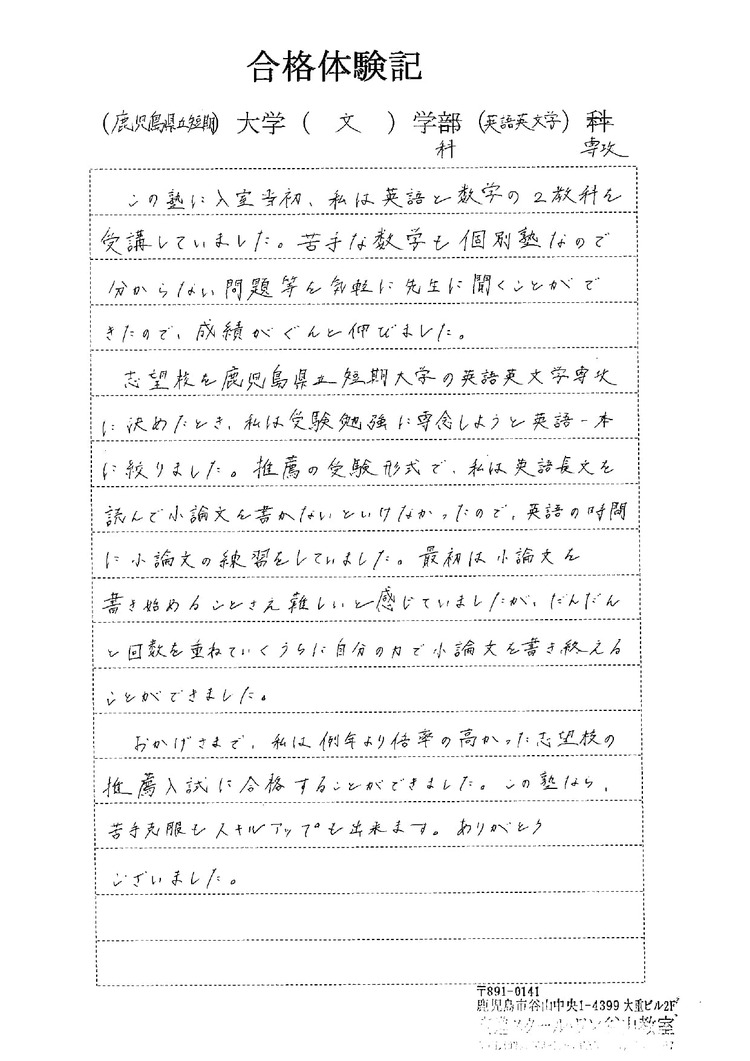 合格体験記
(鹿児島県立短期) 大学 ( 文 ) 学部 (英語英文学) 科
科 専攻
この塾に入室当初、私は英語と数学の2教科を
受講していました。苦手な数学も個別塾なので
分からない問題等を気軽に先生に聞くことがで
きたので、成績がぐんと伸びました。
志望校を鹿児島県立短期大学の英語英文学専攻
に決めたとき、私は受験勉強に専念しようと英語一本
に絞りました。推薦の受験形式で、私は英語長文を
読んで小論文を書かないといけなかったので、英語の時間
に小論文の練習をしていました。最初は小論文を
書き始めることさえ難しいと感じていましたが、だんだん
と回数を重ねていくうちに自分の力で小論文を書き終える
ことができました。
おかげさまで、私は例年より倍率の高かった志望校の
推薦入試に合格することができました。この塾なら、
苦手克服もスキルアップも出来ます。ありがとう
ございました。
〒891-0141
鹿児島市谷山中央1-4399 大重ビル2F
スクール・ワン谷山教室